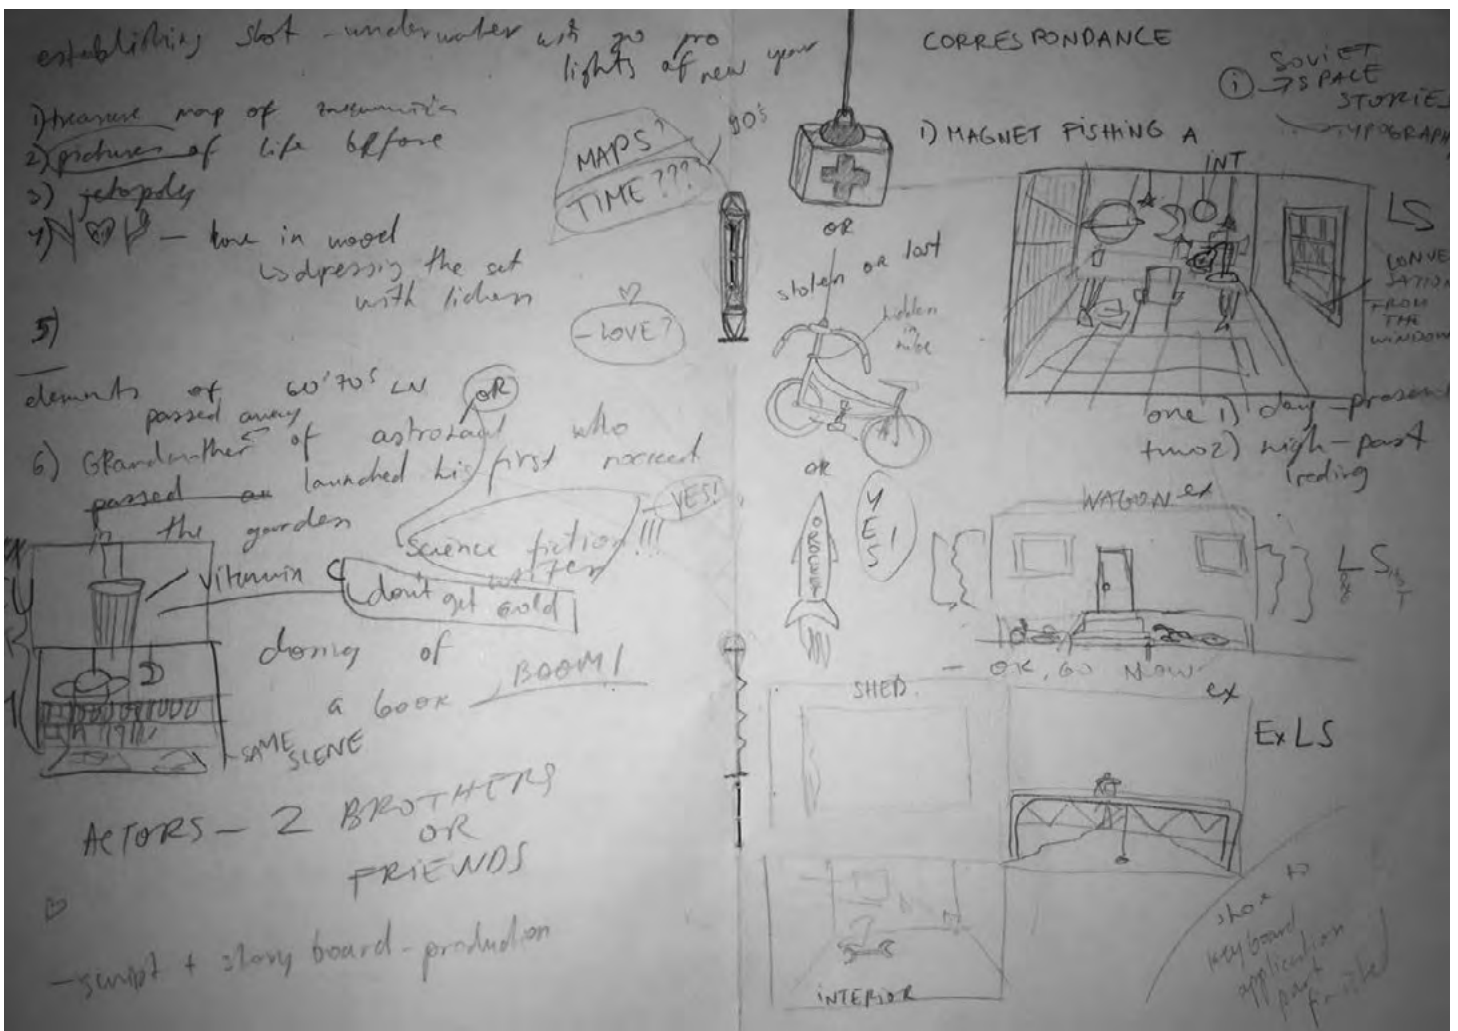 establishing shot - underwater with go pro
lights of new year
1) treasure map of
2) pictures of life before
3)
4) - love in wood
dressing the set
with lichen
5)
elements of 60' 70s LN
OR
passed away
6) Grandmother of astronaut who
passed launched his first rocket
in the garden
science fiction!!!
writer
YES!
vitamin C
don't get cold
closing of
a book BOOM!
SAME
SCENE
ACTORS - 2 BROTHERS
OR
FRIENDS
- script + story board - production
MAPS?
TIME???
90s
- LOVE?
OR
stolen or lost
hidden
in
OR
ROCKET
YES!
CORRESPONDANCE
i → SOVIET
SPACE
STORIES
TYPOGRAPH
1) MAGNET FISHING A
INT
LS
CONVE
SATION
FROM
THE
WINDOW
one 1) day - present
two 2) nigh - past
WAGON ex
LS
- OK, GO NOW
SHED
ex
Ex LS
INTERIOR
shot to
keyboard
application
part